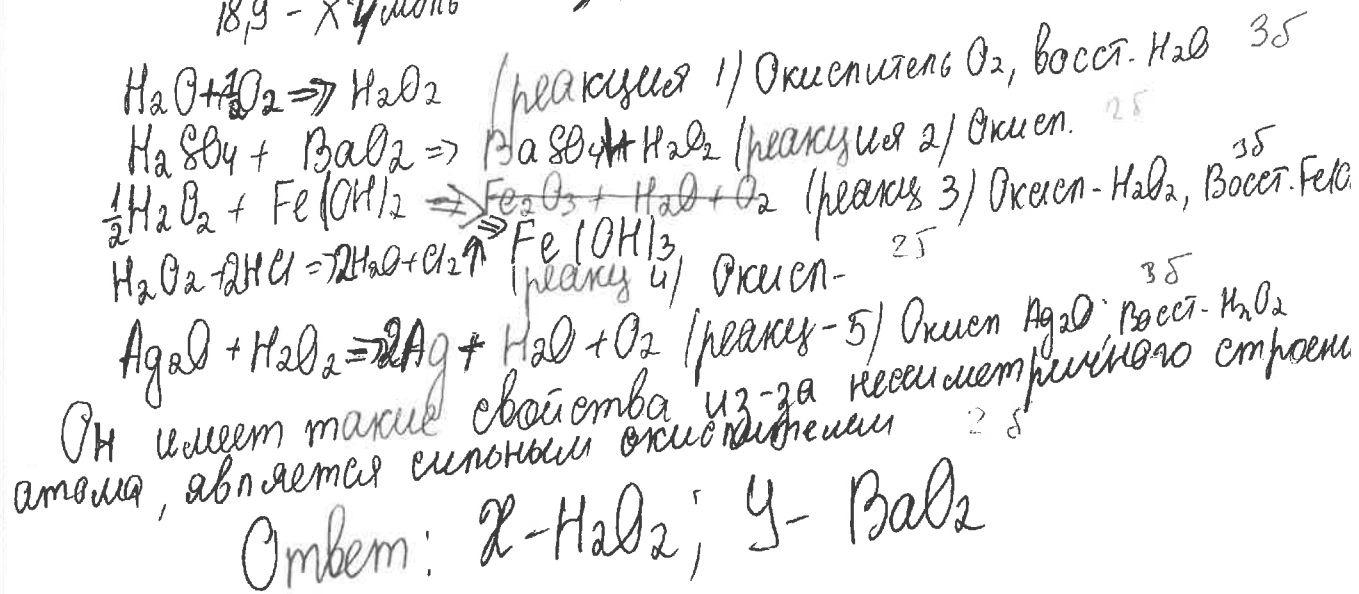 18,9 - X моль
H₂O + ½O₂ => H₂O₂ (реакция 1) Окислитель O₂, восст. H₂O 3б
H₂SO₄ + BaO₂ => BaSO₄ + H₂O₂ (реакция 2) Окисл. 2б
½H₂O₂ + Fe(OH)₂ => Fe₂O₃ + H₂O + O₂ (реакц 3) Окисл - H₂O₂, Восст. Fe(O 3б
=> Fe(OH)₃
H₂O₂ + 2HCl => 2H₂O + Cl₂↑ (реакц 4) Окисл - 2б
Ag₂O + H₂O₂ => 2Ag + H₂O + O₂ (реакц - 5) Окисл Ag₂O; Восст - H₂O₂ 3б
Он имеет такие свойства из-за несиметричного строени
атома, является сильоным окислителем 2б
Ответ: X - H₂O₂; У - BaO₂